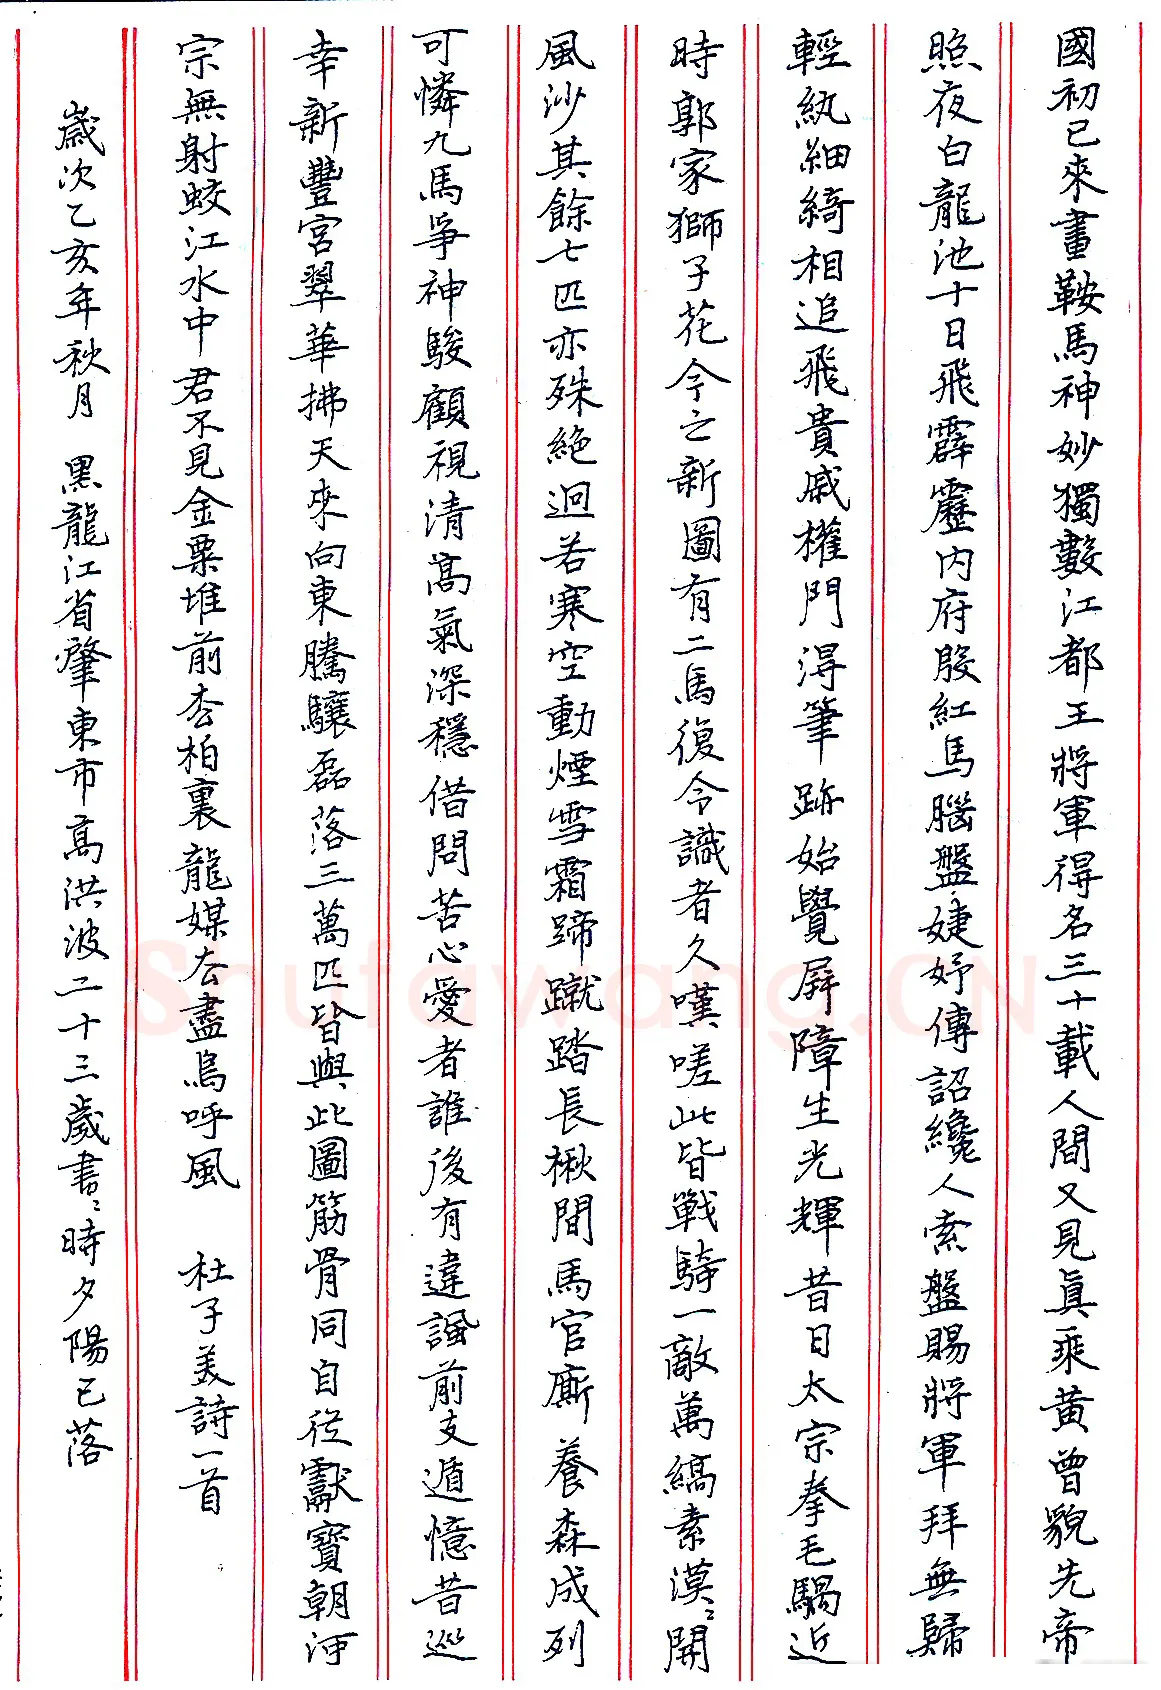 國初已來畫鞍馬神妙獨數江都王將軍得名三十載人間又見真乘黃曾貌先帝
照夜白龍池十日飛霹靂內府殷紅馬腦盤婕妤傳詔纔人索盤賜將軍拜舞歸
輕紈細綺相追飛貴戚權門得筆跡始覺屏障生光輝昔日太宗拳毛騧近
時郭家獅子花今之新圖有二馬復令識者久嘆嗟此皆戰騎一敵萬縞素漠〻開
風沙其餘七匹亦殊絕迥若寒空動煙雪霜蹄蹴踏長楸間馬官廝養森成列
可憐九馬爭神駿顧視清高氣深穩借問苦心愛者誰後有違諷前支遁憶昔巡
幸新豐宮翠華拂天來向東騰驤磊落三萬匹皆與此圖筋骨同自從獻寶朝河
宗無射蛟江水中君不見金粟堆前松柏裏龍媒去盡鳥呼風 杜子美詩一首
歲次乙亥年秋月 黑龍江省肇東市高洪波二十三歲書〻時夕陽已落
Shufawang.CN